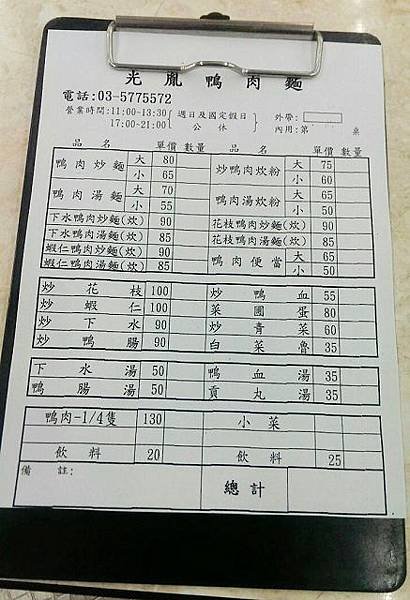 光胤鴨肉麵
電話:03-5775572
營業時間:11:00~13:30 週日及國定假日 外帶:
17:00~21:00 公休 內用:第 桌
品名 單價 數量 品名 單價 數量
鴨肉炒麵 大 80 炒鴨肉炊粉 大 75
小 65 小 60
鴨肉湯麵 大 70 鴨肉湯炊粉 大 65
小 55 小 50
下水鴨肉炒麵(炊) 90 花枝鴨肉炒麵(炊) 90
下水鴨肉湯麵(炊) 85 花枝鴨肉湯麵(炊) 85
蝦仁鴨肉炒麵(炊) 90 鴨肉便當 大 65
蝦仁鴨肉湯麵(炊) 85 小 50
炒花枝 100 炒鴨血 55
炒蝦仁 100 菜圃蛋 80
炒下水 90 炒青菜 60
炒鴨腸 90 白菜魯 35
下水湯 50 鴨血湯 35
鴨腸湯 50 貢丸湯 35
鴨肉-1/4隻 130 小菜
飲料 20 飲料 25
備註: 總計